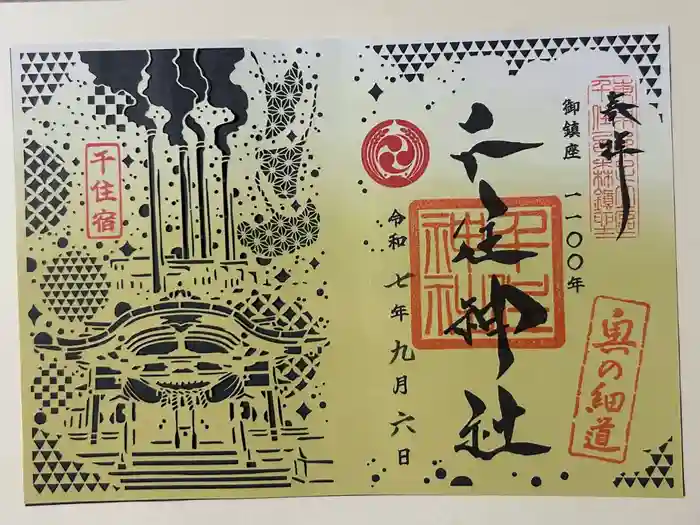 奉拝
御鎮座 一一〇〇年
千住神社
千住神社
令和 七年 九月 六日
奥の細道
千住宿